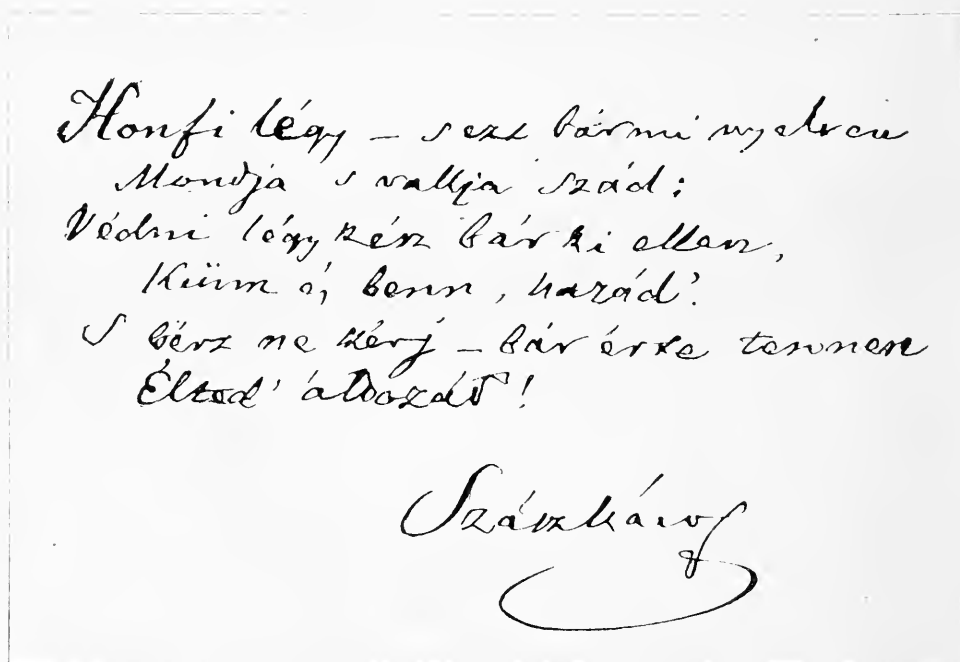 Honfi légy – s ezt bármi nyelven
Mondja s vallja szád;
Védni légy kész bár ki ellen,
Künn és benn, hazád'.
S bért ne kérj – bár érte tennen
Élted' áldozád!
Szász Károly